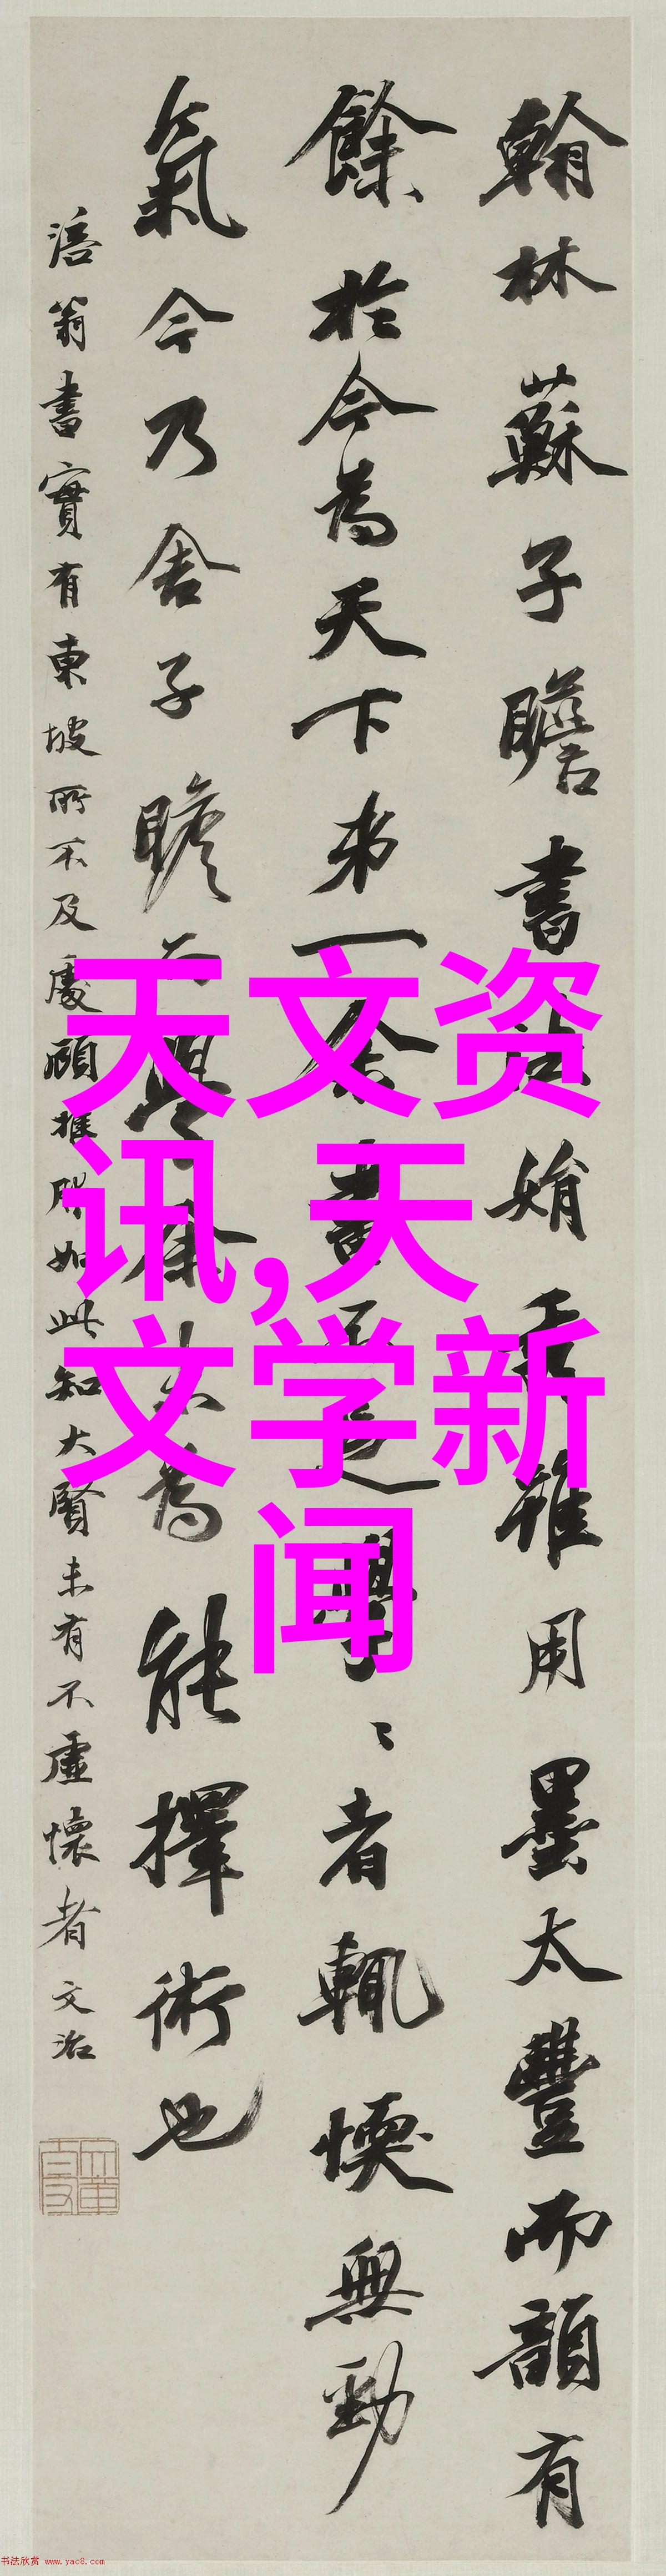 翰林蘇子瞻書法娟秀雖用墨太豐而韻有
餘於今為天下第一余書不足學〻者輒愞無勁
氣今乃舍子瞻而學余未為能擇術也
涪翁書實有東坡所不及處顧推服如此知大賢未有不虛懷者文治
天文资
讯,天
文学新
闻
书法欣赏 www.yac8.com